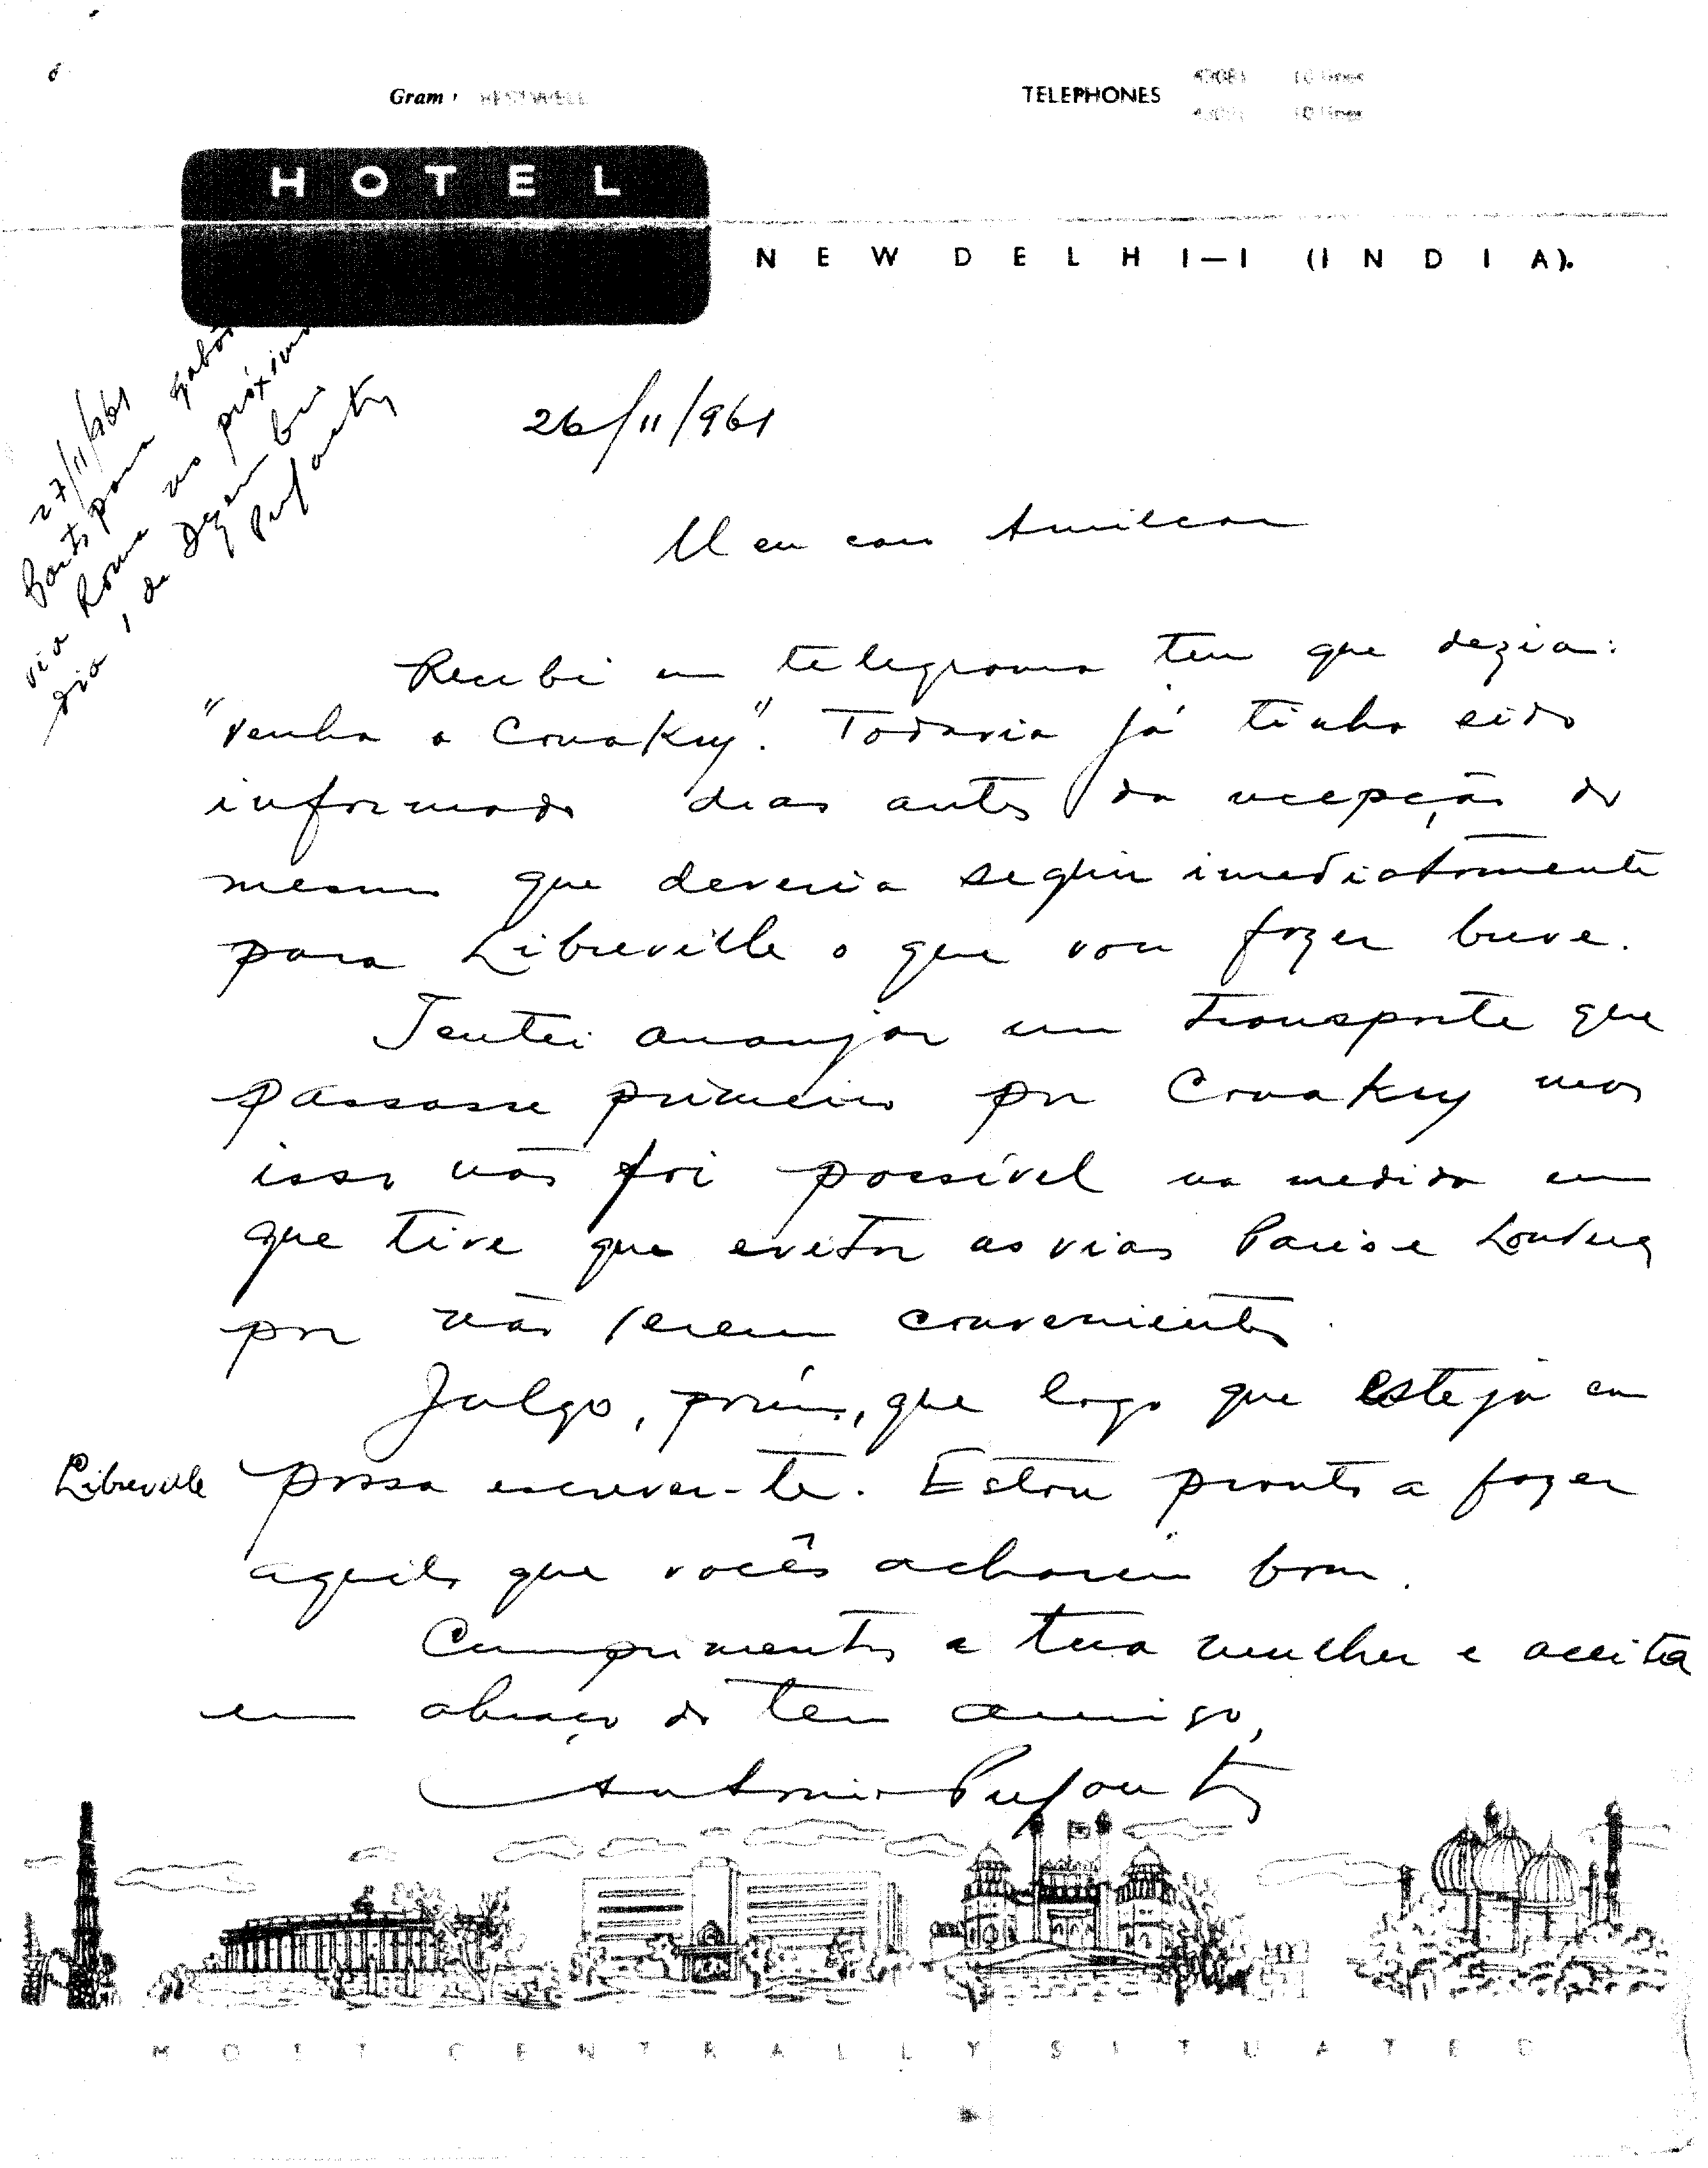 Gram: WESTWELL
TELEPHONES
10 lines
10 lines
HOTEL
NEW DELHI—I (INDIA).
27/11/961
Parto para Gabão
via Roma no próximo
dia 1 de Dezembro
26/11/961
Meu caro Amilcar
Recebi um telegrama teu que dezia:
"venha a Conakry". Todavia já tinha sido
informado dias antes da recepção do
mesmo que deveria seguir imediatamente
para Libreville o que vou fazer breve.
Tentei arranjar um transporte que
passasse primeiro por Conakry mas
isso não foi possível na medida em
que tive que evitar as vias Paris e Londres
por não serem convenientes.
Julgo, porém, que logo que esteja em
Libreville possa escrever-te. Estou pronto a fazer
aquilo que vocês acharem bom.
Cumprimentos a tua mulher e aceita
um abraço do teu amigo,
Antonio
MOST CENTRALLY SITUATED